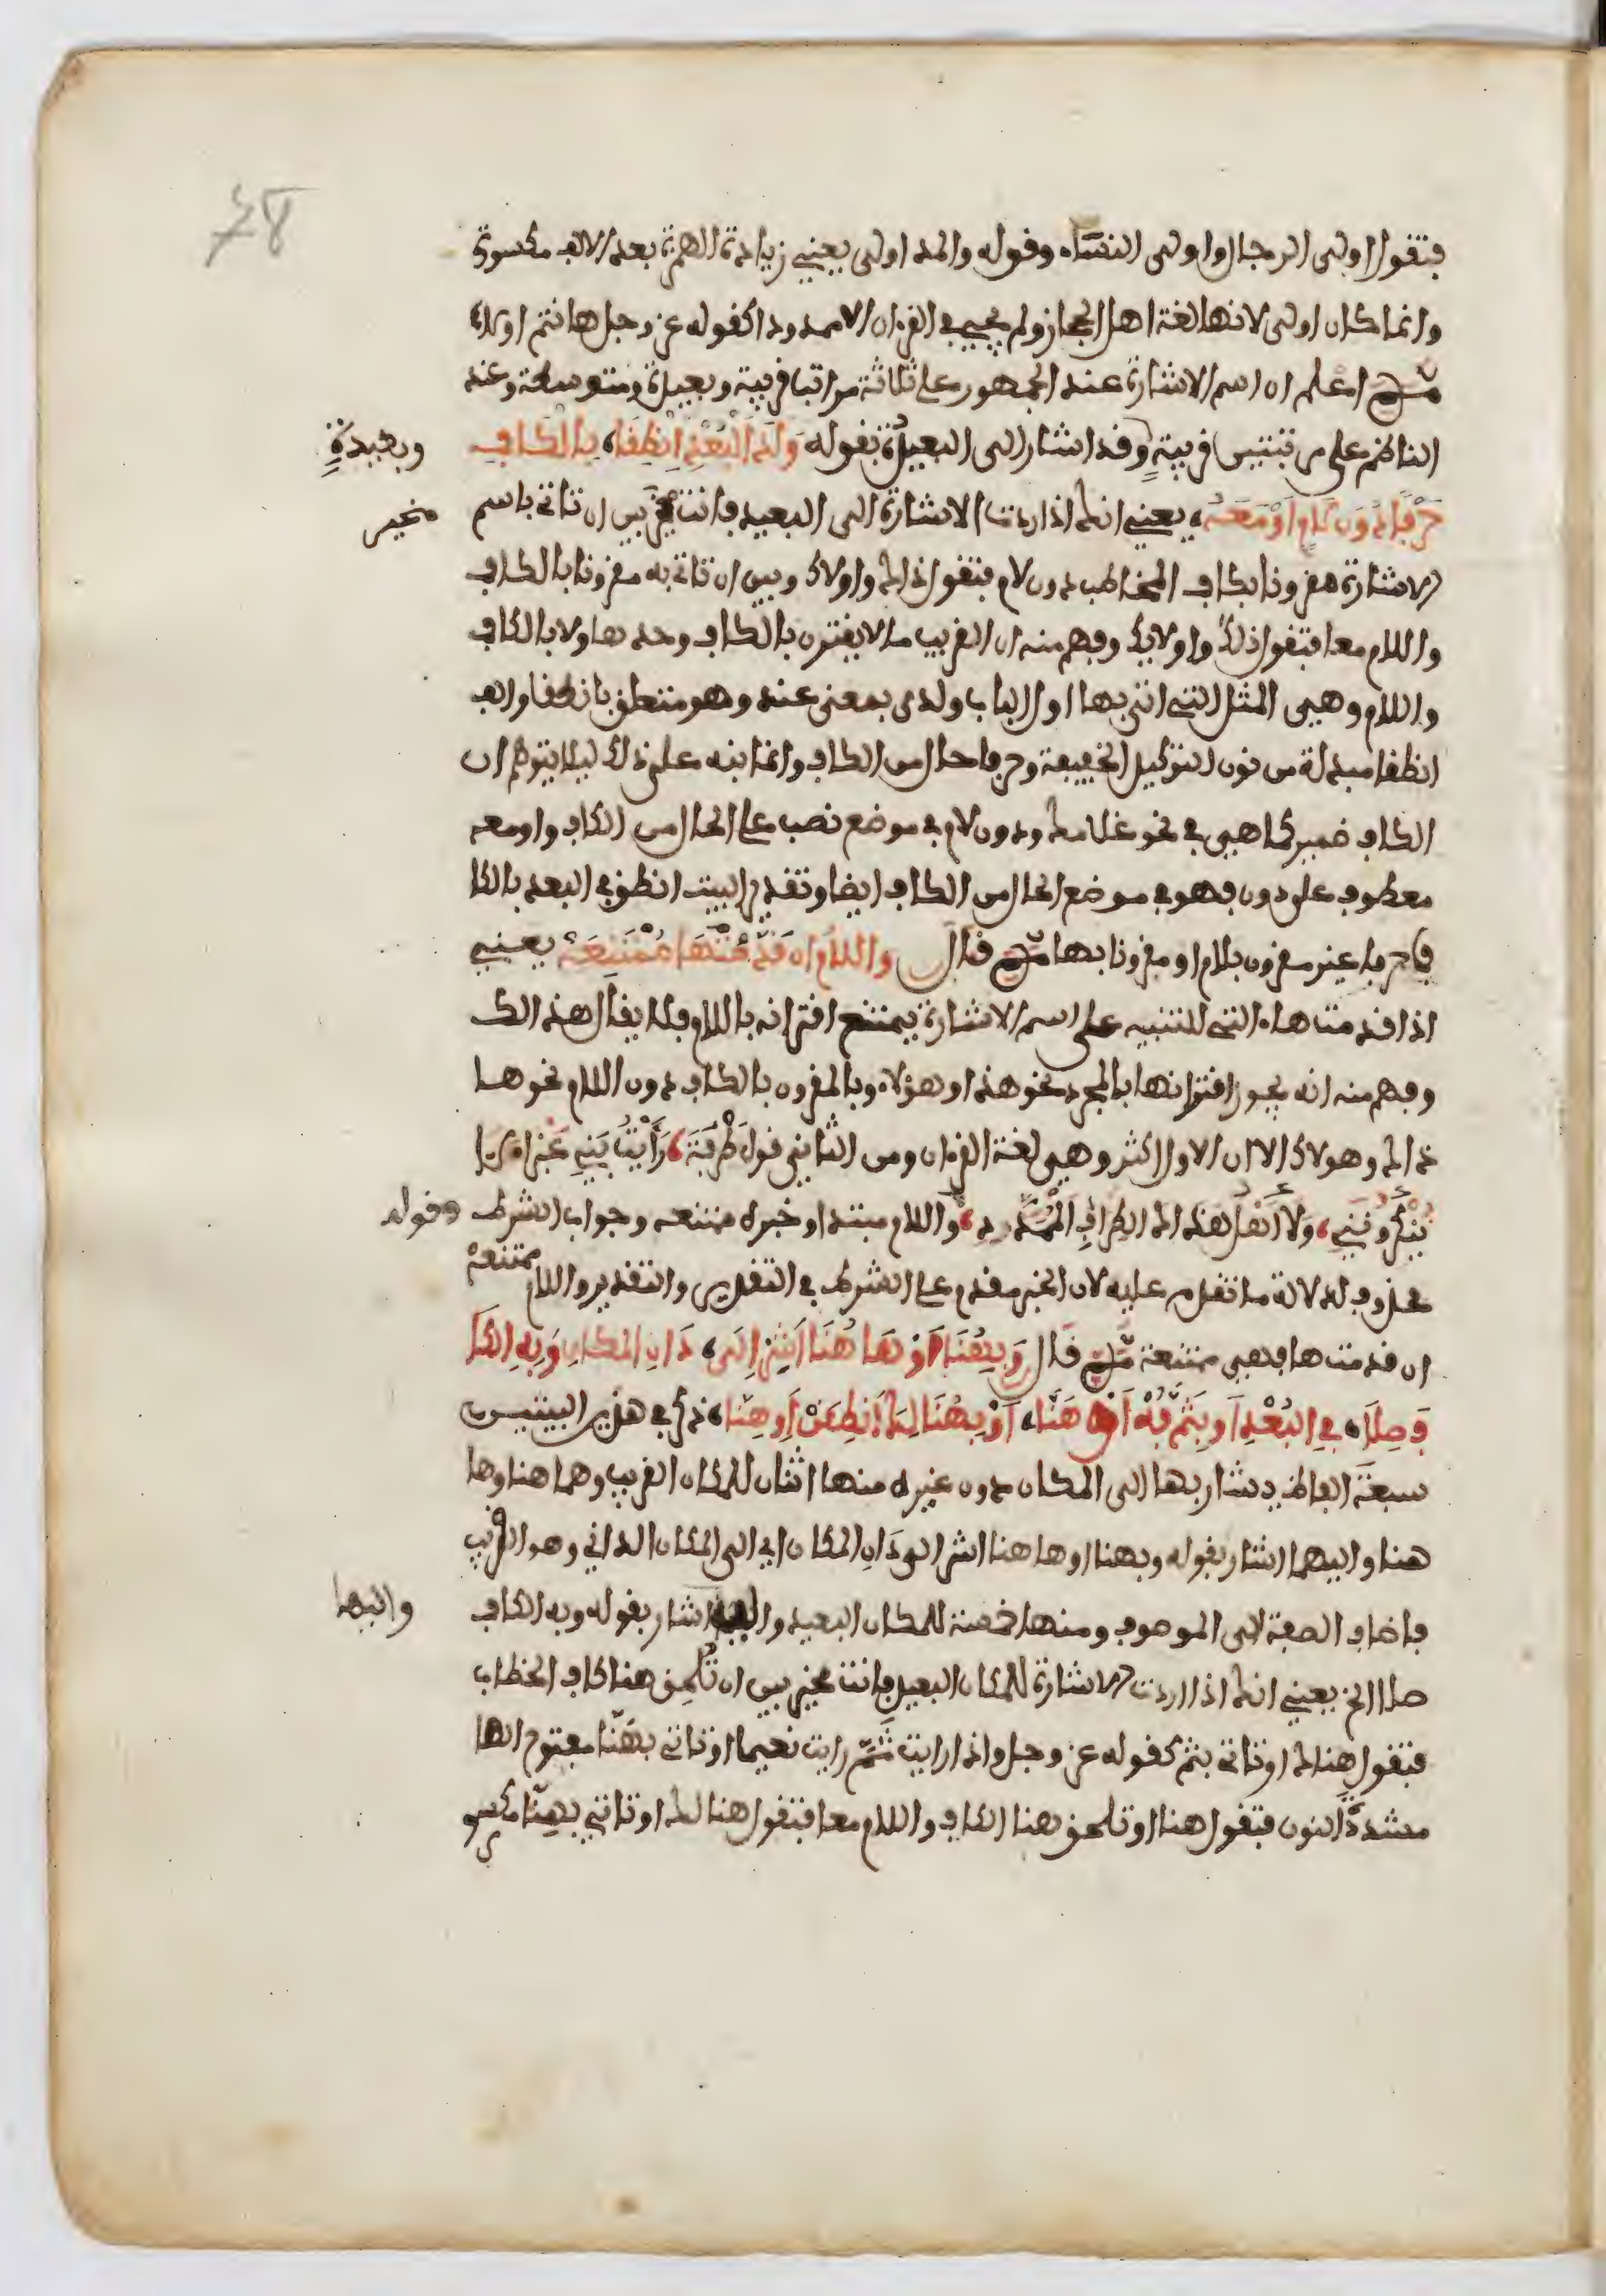 78
فتقول اولى الرجال واولى النساء وقوله والمد اولى يعني زيادة الهمزة بعد الالف مكسورة
وانما كان اولى لانها لغة اهل الحجاز ولم يجيء في القرءان الا ممدودا كقوله عز وجل هانتم اولاء
ثم اعلم ان اسم الاشارة عند الجمهور على ثلاثة مراتب قريبة وبعيدة ومتوسطة وعند
الناظم على مرتبتين قريبة وقد اشار الى البعيدة بقوله ولدى البعد انطقا، بالكاف
وبعيدة
حرفا دون لام او معه، يعني انك اذا اردت الاشارة الى البعيد فانت مخير بين ان تاتي باسم
مخير
الاشارة مقرونا بكاف المخاطب دون لام فتقول ذاك واولاك وبين ان تاتي به مقرونا بالكاف
واللام معا فتقول ذلك واولالك وفهم منه ان القريب ما لا يقترن بالكاف وحدها ولا بالكاف
واللام وهي المثل التي اتى بها اول الباب ولدى بمعنى عند وهو متعلق بانطقا والف
انطقا مبدلة من نون التوكيد الخفيفة وحرفا حال من الكاف وانما نبه على ذلك ليلا يتوهم ان
الكاف ضمير كما هي في نحو غلامك ودون لام في موضع نصب على الحال من الكاف واو معه
معطوف على دون فهو في موضع الحال من الكاف ايضا وتقدير البيت انطق في البعد بالكا
ف حرفا غير مقرون بلام او مقرونا بها ثم قال واللام ان قدمت ها ممتنعة يعني
اذا قدمت هاء التي للتنبيه على اسم الاشارة يمتنع اقترانه باللام فلا يقال هذالك
وفهم منه انه يجوز اقترانها بالمجرد نحو هذا وهؤلاء وبالمقرون بالكاف دون اللام نحو ها
ذاك وهولاك الا ان الاول اكثر وهي لغة القرءان ومن الثاني قول طرفة، رأيت بني غبراء لا
ينكرونني، ولا أهل هذاك الطراف الممدد، واللام مبتدا وخبره ممتنعه وجواب الشرط
وقوله
محذوف لدلالة ما تقدم عليه لان الخبر مقدم على الشرط في التقدير والتقدير واللام ممتنعة
ان قدمت ها فهي ممتنعة ثم قال وبهنا او هاهنا اشر الى، دان المكان وبه الكا
ف صلا، في البعد او بثم فه او هنا، او بهنالك انطقن او هنا، ذكر في هذين البيتين
سبعة الفاظ يشار بها الى المكان دون غيره منها اثنان للمكان القريب وهما هنا وها
هنا واليهما اشار بقوله وبهنا او هاهنا اشر الى دان المكان اي الى المكان الداني وهو القريب
فاضاف الصفة الى الموصوف ومنها خمسة للمكان البعيد واليها اشار بقوله وبه الكاف
واليها
صلا الخ يعني انك اذا اردت الاشارة للمكان البعيد فانت مخير بين ان تلحق هنا كاف الخطاب
فتقول هناك او تاتي بثم كقوله عز وجل واذا رايت ثم رايت نعيما او تاتي بهنا مفتوح الها
مشددة النون فتقول هنا او تلحق هنا الكاف واللام معا فتقول هنالك او تاتي بهنا مكسو
ر